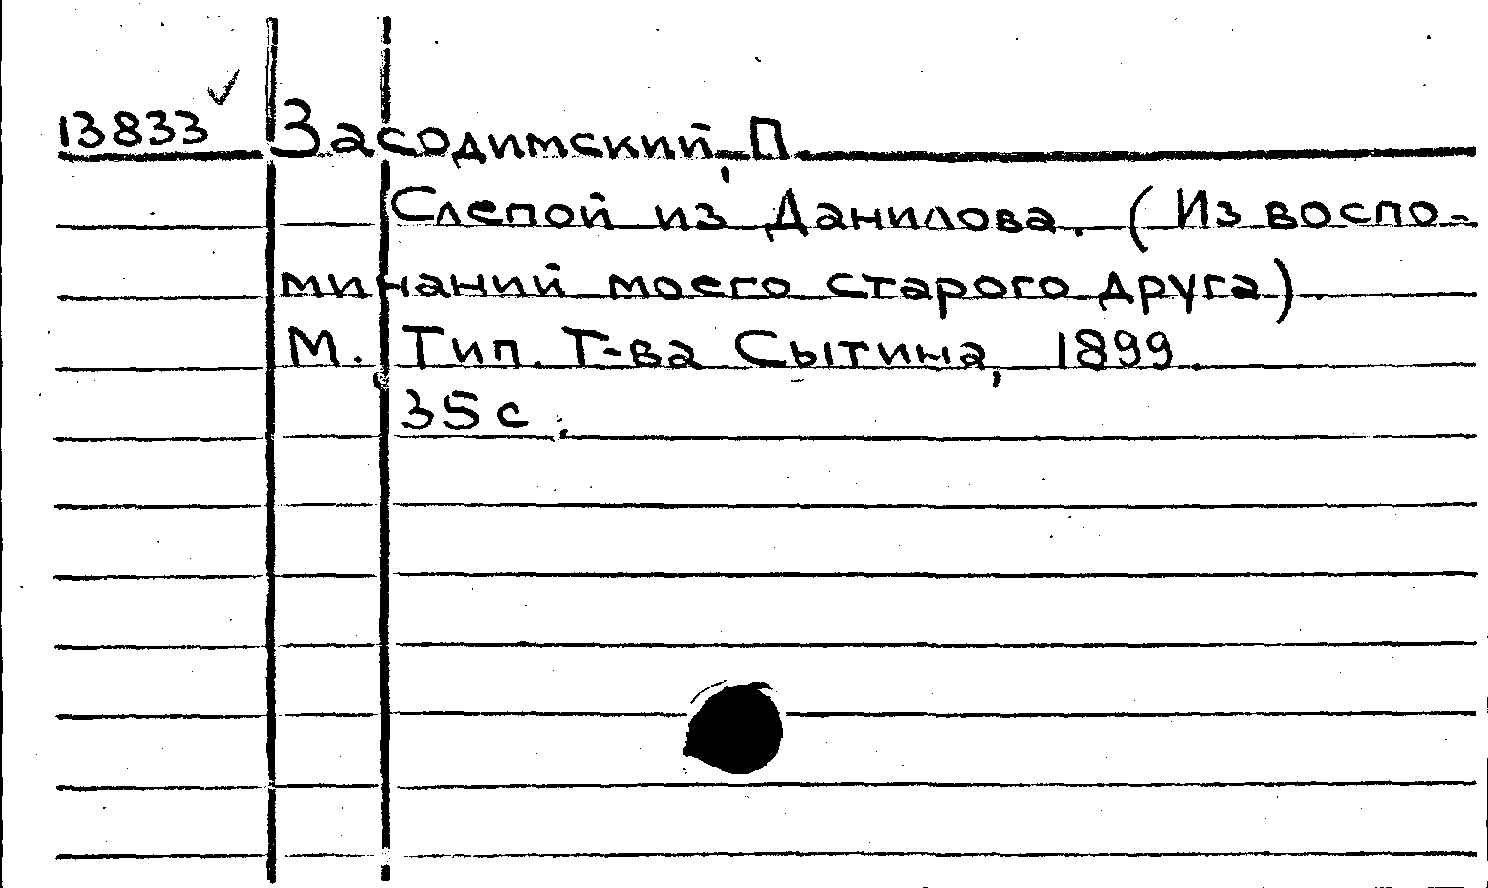 13833 Засодимский, П.
Слепой из Данилова. (Из воспо-
минаний моего старого друга)
М., Тип. Т-ва Сытина, 1899.
35 с.